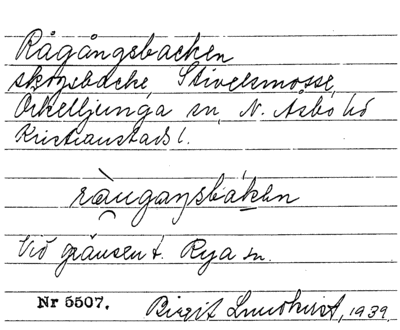 Rågångsbacken
skogsbacke, Stivelsmosse,
Örkelljunga sn, N. Åsbo hd
Kristianstads l.
ràugaŋsbáken
Vid gränsen t. Rya sn.
Nr 5507. Birgit Lundkvist, 1939